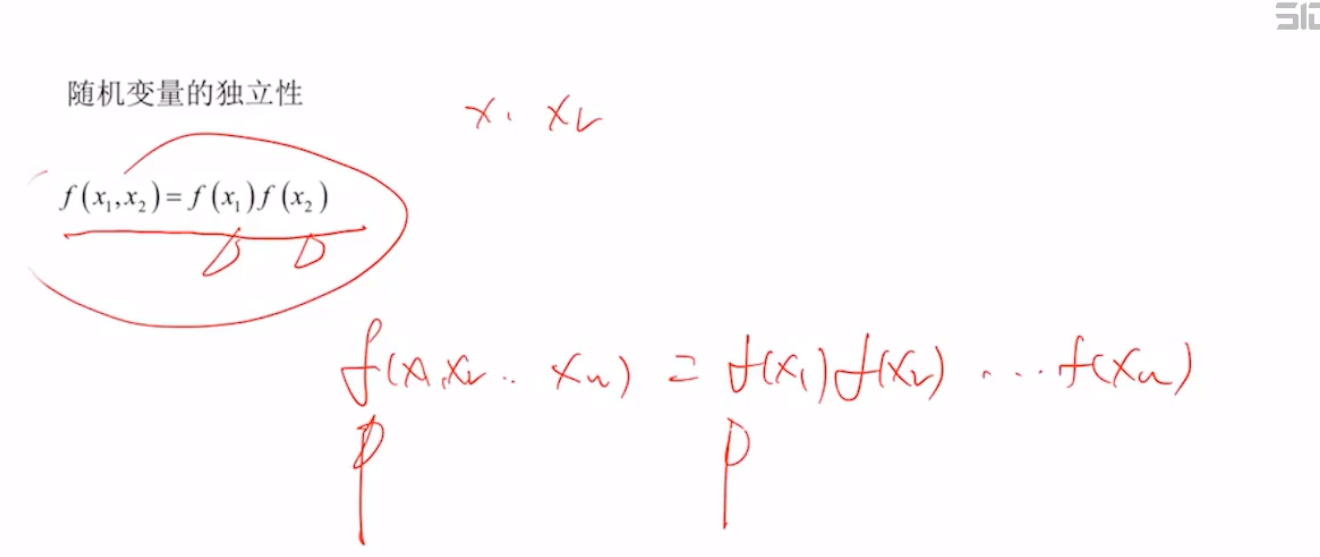 随机变量的独立性
x₁ x₂
f(x₁,x₂)=f(x₁)f(x₂)
f(x₁,x₂.. xₙ) = f(x₁)f(x₂) .... f(xₙ)
P P